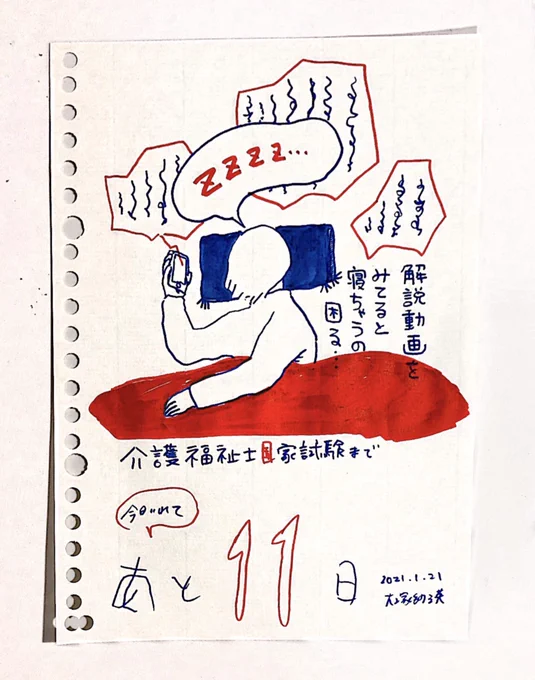 ZZZZ...
解説動画を
みてると
寝ちゃうの
困る…
介護福祉士国家試験まで
今日いれて
あと11日
2021.1.21